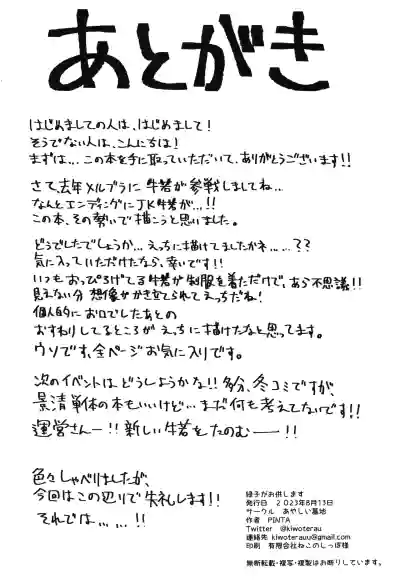 あとがき
はじめましての人は、はじめまして!
そうでない人は、こんにちは!
まずは…この本を手に取っていただいて、ありがとうございます!!
さて、去年メルブラに牛若が参戦しましてね…
なんとエンディングにJK牛若が…!!
この本、その勢いで描こうと思いました。
どうでしたでしょうか…えっちに描けてましたかネ……??
気に入っていただけたなら、幸いです!!
いつもおっぴろげてる牛若が制服を着ただけで、あら不思議!!
見えない分想像がかき立てられてえっちだね!
個人的にお口でしたあとの
おすわりしてるところがえっちに描けたなと思ってます。
ウソです、全ページお気に入りです。
次のイベントはどうしようかな!!多分、冬コミですが、
景清単体の本もいいけど…まだ何も考えてないです!!
運営さんー!!新しい牛若をたのむー!!
色々しゃべりましたが、
今回はこの辺りで失礼します!!
それでは……!!
緑子がお供します
発行日 2023年8月13日
サークル あやしい墓地
作者 PINTA
Twitter @kiwoterau
連絡先 kiwoterauu@gmail.com
印刷 有限会社ねこのしっぽ様
無断転載・複製・複写はお断りしています。